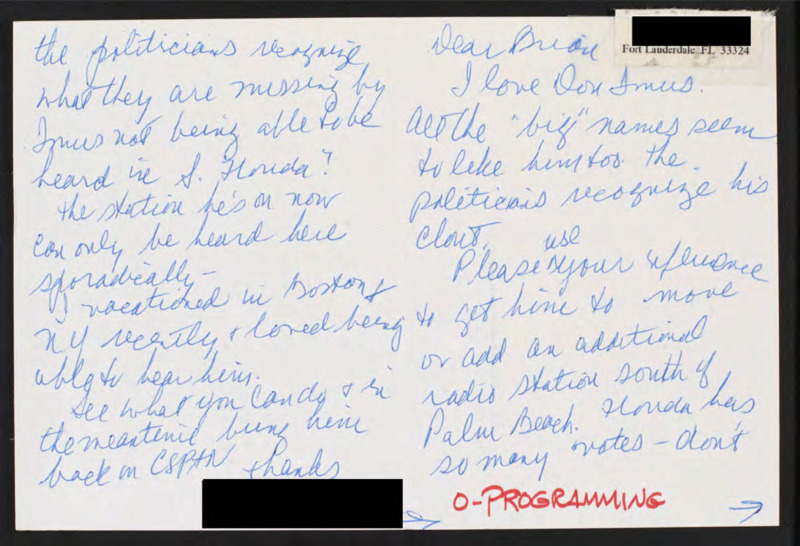 Fort Lauderdale FL 33324
Dear Brian
I love Don Imus.
All the "big" names seem
to like him too. The
politicians recognize his
clout.
Please use your influence
to get him to move
or add an additional
radio station south of
Palm Beach. Florida has
so many votes - don't
O-PROGRAMMING
→
the politicians recognize
what they are missing by
Imus not being able to be
heard in S. Florida?
The station he's on now
can only be heard here
sporadically -
I vacationed in Boston &
NY recently & loved being
able to hear him.
See what you can do & in
the meantime bring him
back on CSPAN
Thanks
→